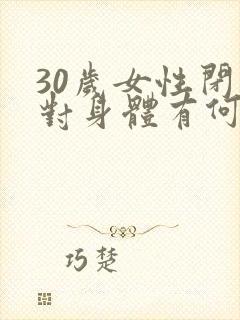 30歲女性閉
對身體有何
巧楚